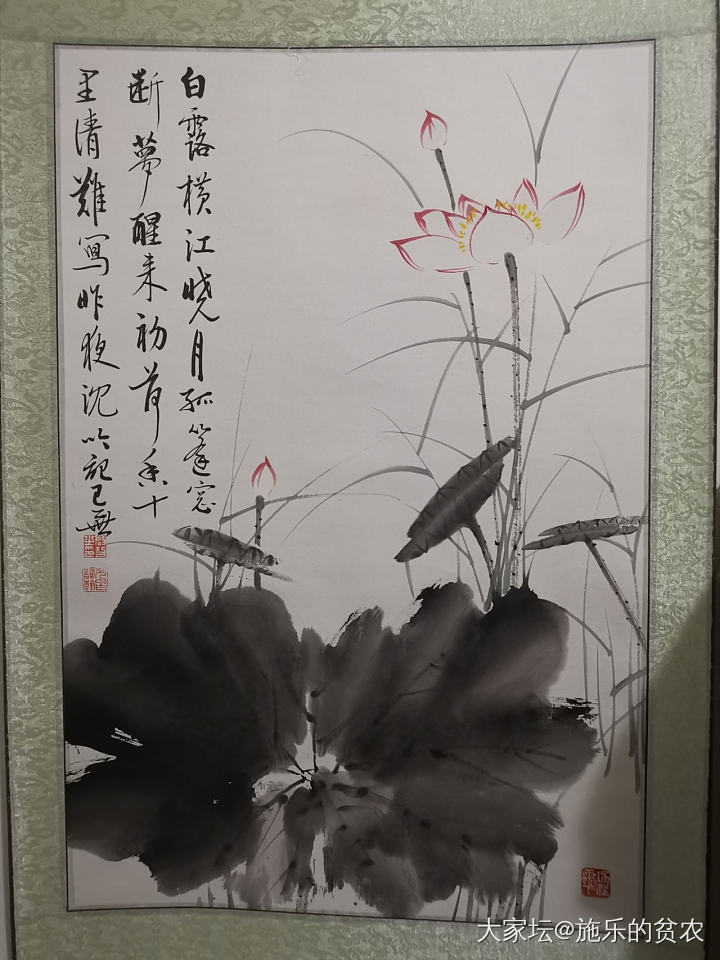 白露横江晓月孤篷窗
断夢醒来初荷香十
里清難寫昨夜沈吟記已無
大家坛@施乐的贫农